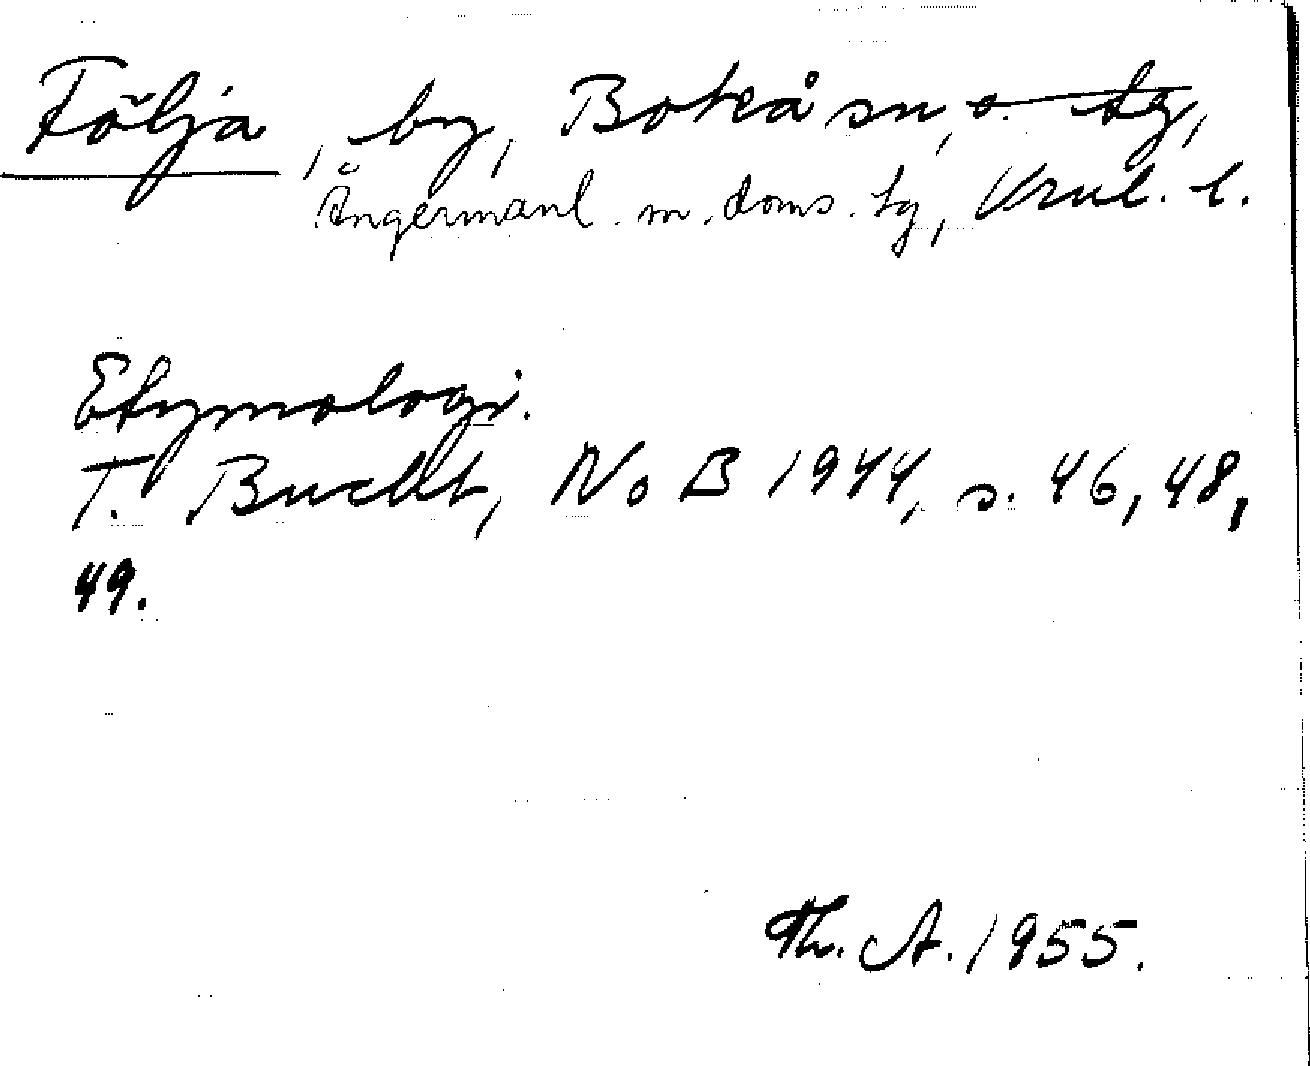 Följa, by, Boteå sn, o. tg,
Ångermanl. m. doms. tg, Vnul. l.
Etymologi.
T. Bucht, No B 1944, s. 46, 48,
49.
Th. A. 1955.